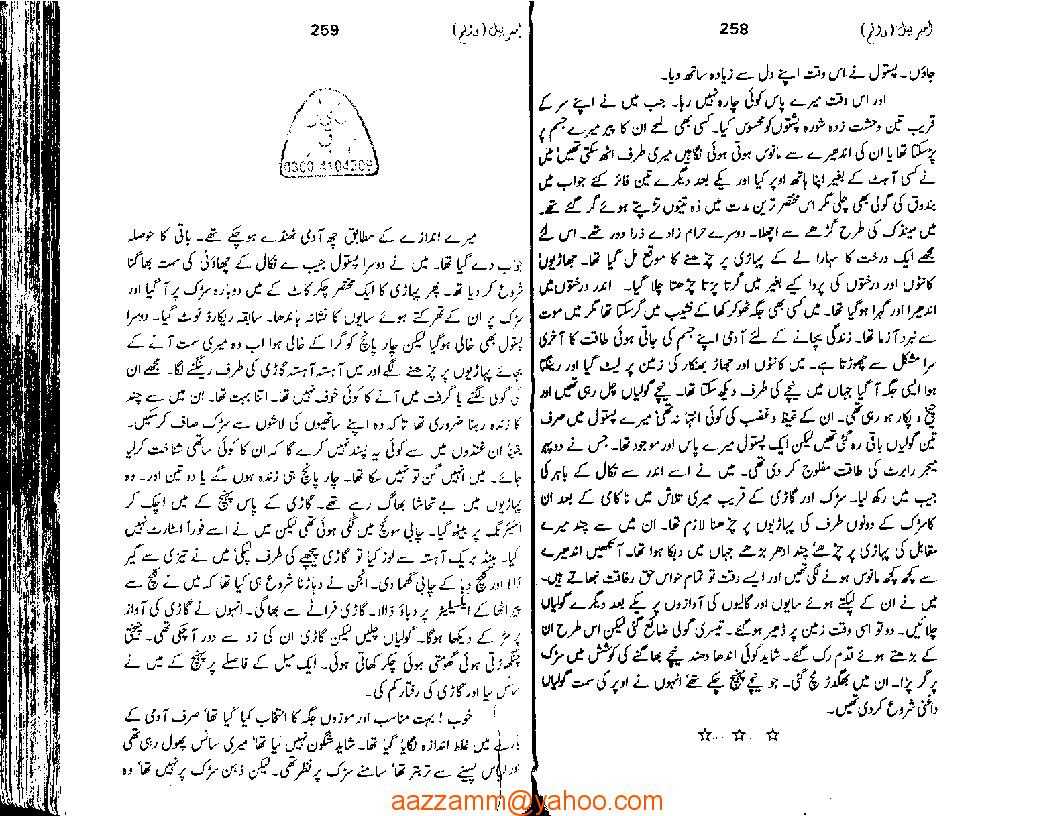 258
جاؤں۔ پستول نے اس وقت اپنے دل سے زیادہ ساتھ دیا۔
اور اس وقت میرے پاس کوئی چارہ نہیں رہا۔ جب میں نے اپنے سر کے
قریب تین وحشت زدہ پشتوں کو محسوس کیا۔ کسی بھی لمحے ان کا پیر میرے جسم پر
پڑ سکتا تھا یا ان کی اندھیرے سے مانوس ہوتی ہوئی نگاہیں میری طرف اٹھ سکتی تھیں میں
نے کسی آہٹ کے بغیر اپنا ہاتھ اوپر کیا اور یکے بعد دیگرے تین فائر کئے جواب میں
بندوق کی گولی بھی چلی مگر اس مختصر ترین مدت میں وہ تینوں تڑپتے ہوئے گر گئے تھے۔
میں مینڈک کی طرح گڑھے سے اچھلا۔ دوسرے حرام زادے ذرا دور تھے۔ اس لئے
مجھے ایک درخت کا سہارا لے کے پہاڑی پر چڑھنے کا موقع مل گیا تھا۔ جھاڑیوں
کانٹوں اور درختوں کی پروا کیے بغیر میں گرتا پڑتا چڑھتا چلا گیا۔ اندر درختوں میں
اندھیرا اور گہرا ہوگیا تھا۔ میں کسی بھی جگہ ٹھوکر کھا کے نشیب میں گر سکتا تھا مگر میں موت
سے نبرد آزما تھا۔ زندگی بچانے کے لئے آدمی اپنے جسم کی جاتی ہوئی طاقت کا آخری
سرا مشکل سے چھوڑتا ہے۔ میں کانٹوں اور جھاڑ جھنکار کی زمین پر لیٹ گیا اور رینگتا
ہوا ایسی جگہ آ گیا جہاں میں نیچے کی طرف دیکھ سکتا تھا۔ نیچے گولیاں چل رہی تھیں اور
چیخ و پکار ہو رہی تھی۔ ان کے غیظ و غضب کی کوئی انتہا نہ تھی میرے پستول میں صرف
تین گولیاں باقی رہ گئی تھیں لیکن ایک پستول میرے پاس اور موجود تھا۔ جس نے دوپہر
میجر رابرٹ کی طاقت مفلوج کر دی تھی۔ میں نے اسے اندر سے نکال کے باہر کی
جیب میں رکھ لیا۔ سڑک اور گاڑی کے قریب میری تلاش میں ناکامی کے بعد ان
کا سڑک کے دونوں طرف کی پہاڑیوں پر چڑھنا لازم تھا۔ ان میں سے چند میرے
مقابل کی پہاڑی پر چڑھے چند ادھر بڑھے جہاں میں دبکا ہوا تھا۔ آنکھیں اندھیرے
سے کچھ کچھ مانوس ہونے لگی تھیں اور ایسے وقت تو تمام حواس حق رفاقت نبھاتے ہیں۔
میں نے ان کے لپکتے ہوئے سایوں اور گالیوں کی آوازوں پر یکے بعد دیگرے گولیاں
چلائیں۔ دو تو اسی وقت زمین پر ڈھیر ہو گئے۔ تیسری گولی ضائع گئی لیکن اس طرح ان
کے بڑھتے ہوئے قدم رک گئے۔ شاید کوئی اندھا دھند نیچے بھاگنے کی کوشش میں سڑک
پر گر پڑا۔ ان میں بھگدڑ مچ گئی۔ جو نیچے پہنچ چکے تھے انہوں نے اوپر کی سمت گولیاں
داغنی شروع کر دی تھیں۔
☆ ... ☆ . ☆
259
0300 4104209
میرے اندازے کے مطابق چھ آدمی ٹھنڈے ہو چکے تھے۔ باقی کا حوصلہ
جواب دے گیا تھا۔ میں نے دوسرا پستول جیب سے نکال کے چھاؤنی کی سمت بھاگنا
شروع کر دیا تھا۔ پھر پہاڑی کا ایک مختصر چکر کاٹ کے میں دوبارہ سڑک پر آ گیا اور
سڑک پر ان کے تھرکتے ہوئے سایوں کا نشانہ باندھا۔ سابقہ ریکارڈ ٹوٹ گیا۔ دوسرا
پستول بھی خالی ہوگیا لیکن چار پانچ کو گرا کے خالی ہوا اب وہ میری سمت آنے کے
بجائے پہاڑیوں پر چڑھنے لگے اور میں آہستہ آہستہ گاڑی کی طرف رینگنے لگا۔ مجھے ان
کی گولی لگنے یا گرفت میں آنے کا کوئی خوف نہیں تھا۔ اتنا بہت تھا۔ ان میں سے چند
کا زندہ رہنا ضروری تھا تا کہ وہ اپنے ساتھیوں کی لاشوں سے سڑک صاف کرسکیں۔
یقیناً ان غنڈوں میں سے کوئی یہ پسند نہیں کرے گا کہ ان کا کوئی ساتھی شناخت کرلیا
جائے۔ میں انہیں گن تو نہیں سکا تھا۔ چار پانچ ہی زندہ ہوں گے یا دو تین اور۔ وہ
پہاڑیوں میں بے تحاشا بھاگ رہے تھے۔ گاڑی کے پاس پہنچ کے میں اچک کر
اسٹیرنگ پر بیٹھ گیا۔ چابی سوئچ میں لگی ہوئی تھی لیکن میں نے اسے فوراً اسٹارٹ نہیں
کیا۔ ہینڈ بریک آہستہ سے لوز کیا تو گاڑی پیچھے کی طرف لپکی میں نے تیزی سے گیر
ڈالا اور کلچ دبا کے چابی گھما دی۔ انجن نے دہاڑنا شروع ہی کیا تھا کہ میں نے کلچ سے
پیر اٹھا کے ایکسیلیٹر پر دباؤ ڈالا۔ گاڑی فرانے سے بھاگی۔ انہوں نے گاڑی کی آواز
پر مڑ کے دیکھا ہوگا۔ گولیاں چلیں لیکن گاڑی ان کی زد سے دور آ چکی تھی۔ چیختی
چنگھاڑتی ہوئی گھومتی ہوئی چکر کھاتی ہوئی۔ ایک میل کے فاصلے پر پہنچ کے میں نے
سانس لیا اور گاڑی کی رفتار کم کی۔
خوب! بہت مناسب اور موزوں جگہ کا انتخاب کیا گیا تھا' صرف آدمی کے
بارے میں غلط اندازہ لگایا گیا تھا۔ شاید شگون نہیں لیا تھا' میری سانس پھول رہی تھی
اور لباس پسینے سے تر بتر تھا' سامنے سڑک پر نظر تھی۔ لیکن ذہن سڑک پر نہیں تھا' وہ
aazzamm@yahoo.com